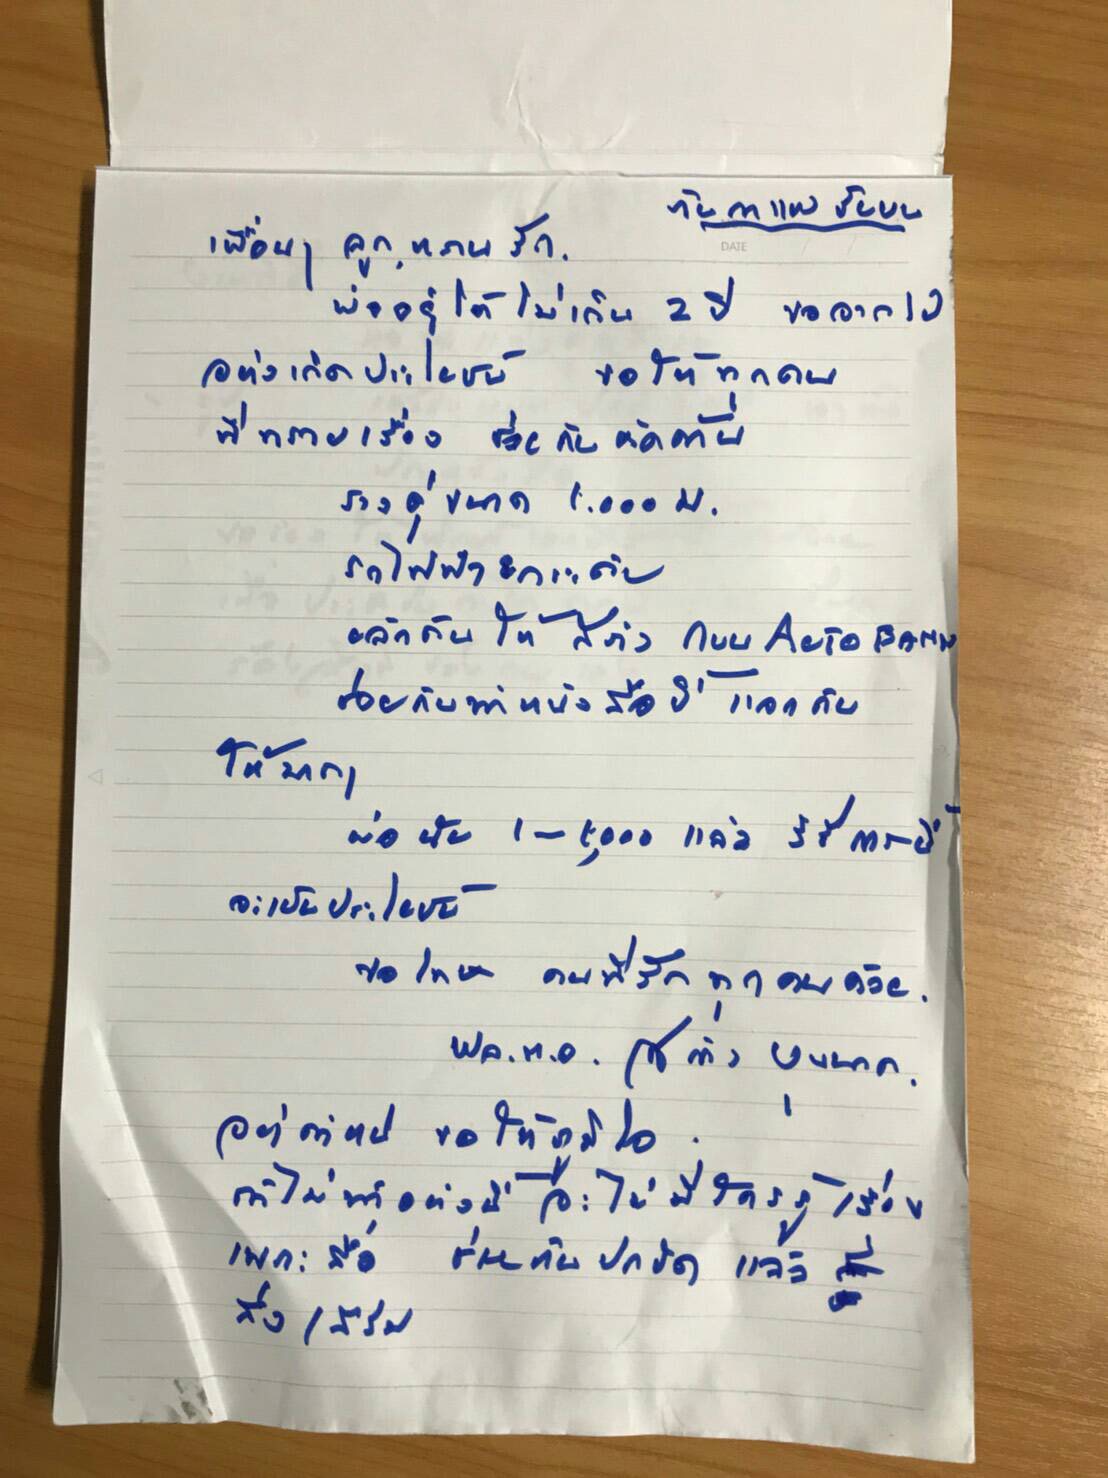 DATE
เพื่อนๆ ลูก,หลาน รัก.
พ่ออยู่ได้ไม่เกิน 2 ปี ขอจากไป
อย่างเกิดประโยชน์ ขอให้ทุกคน
ที่ทราบเรื่อง ช่วยกันคัดค้าน
รางคู่ขนาด 1.000 ม.
รถไฟฟ้ายกระดับ
ผลักดันให้ สี่ช่อง แบบ AUTOBAHN
ช่วยกันทำหนังสือนี้ แจกกัน
ให้มากๆ
พ่อ 1–1,000 แล้ว วิธีการนี้
จะเป็นประโยชน์
ขอโทษ คนที่รักทุกคนด้วย.
พล.ต.อ. บุนนาค.
อย่าตำหนิ ขอให้ภูมิใจ.
ถ้าไม่ทำอย่างนี้ จะไม่มีใครรู้เรื่อง
เพราะสื่อ ช่วยกันปกปิด แล้ว
ส่งเสริม